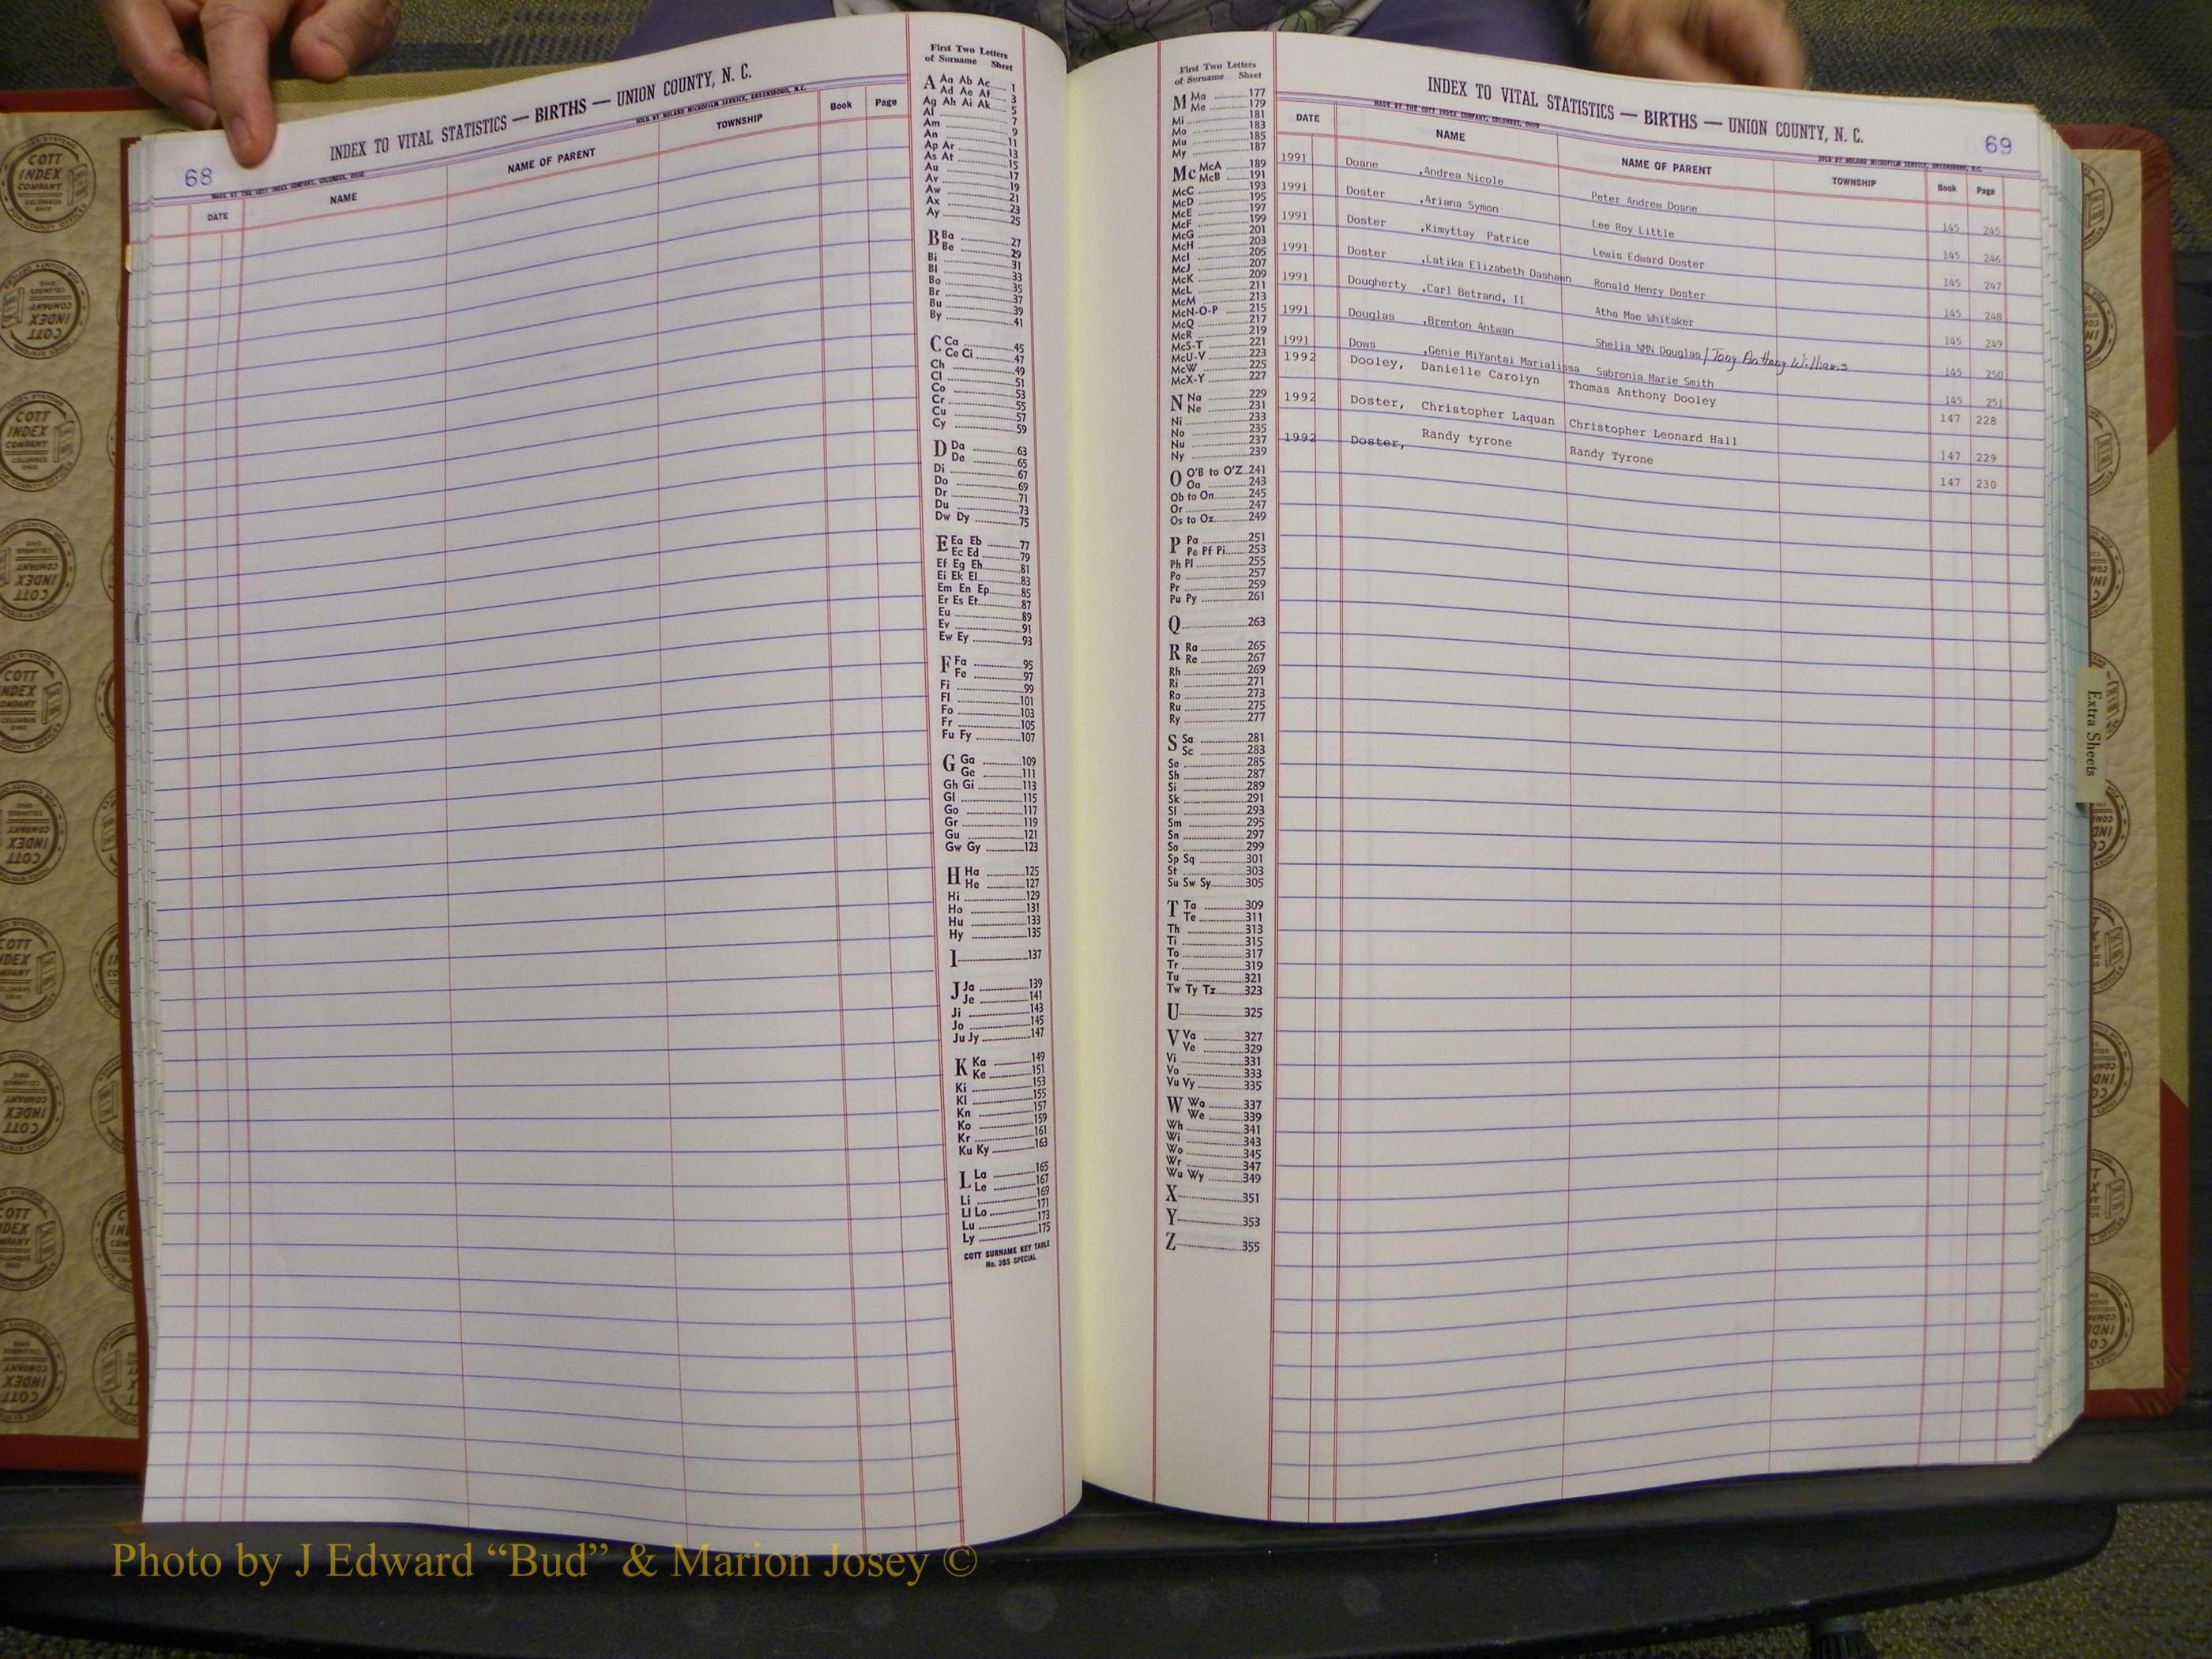 68
INDEX TO VITAL STATISTICS — BIRTHS — UNION COUNTY, N. C.
MADE BY THE COTT INDEX COMPANY, COLUMBUS, OHIO
SOLD BY NOLAND MICROFILM SERVICE, GREENSBORO, N.C.
DATE NAME NAME OF PARENT TOWNSHIP Book Page
First Two Letters
of Surname Sheet
A Aa Ab Ac 1
Ad Ae Af 3
Ag Ah Ai Ak 5
Al 7
Am 9
An 11
Ap Ar 13
As At 15
Au 17
Av 19
Aw 21
Ax 23
Ay 25
B Ba 27
Be 29
Bi 31
Bl 33
Bo 35
Br 37
Bu 39
By 41
C Ca 45
Ce Ci 47
Ch 49
Cl 51
Co 53
Cr 55
Cu 57
Cy 59
D Da 63
De 65
Di 67
Do 69
Dr 71
Du 73
Dw Dy 75
E Ea Eb 77
Ec Ed 79
Ef Eg Eh 81
Ei Ek El 83
Em En Ep 85
Er Es Et 87
Eu 89
Ev 91
Ew Ey 93
F Fa 95
Fe 97
Fi 99
Fl 101
Fo 103
Fr 105
Fu Fy 107
G Ga 109
Ge 111
Gh Gi 113
Gl 115
Go 117
Gr 119
Gu 121
Gw Gy 123
H Ha 125
He 127
Hi 129
Ho 131
Hu 133
Hy 135
I 137
J Ja 139
Je 141
Ji 143
Jo 145
Ju Jy 147
K Ka 149
Ke 151
Ki 153
Kl 155
Kn 157
Ko 159
Kr 161
Ku Ky 163
L La 165
Le 167
Li 169
Ll Lo 171
Lu 173
Ly 175
COTT SURNAME KEY TABLE
No. 355 SPECIAL
First Two Letters
of Surname Sheet
M Ma 177
Me 179
Mi 181
Mo 183
Mu 185
My 187
Mc McA 189
McB 191
McC 193
McD 195
McE 197
McF 199
McG 201
McH 203
McI 205
McJ 207
McK 209
McL 211
McM 213
McN-O-P 215
McQ 217
McR 219
McS-T 221
McU-V 223
McW 225
McX-Y 227
N Na 229
Ne 231
Ni 233
No 235
Nu 237
Ny 239
O O'B to O'Z 241
Oa 243
Ob to On 245
Or 247
Os to Oz 249
P Pa 251
Pe Pf Pi 253
Ph Pl 255
Po 257
Pr 259
Pu Py 261
Q 263
R Ra 265
Re 267
Rh 269
Ri 271
Ro 273
Ru 275
Ry 277
S Sa 281
Sc 283
Se 285
Sh 287
Si 289
Sk 291
Sl 293
Sm 295
Sn 297
So 299
Sp Sq 301
St 303
Su Sw Sy 305
T Ta 309
Te 311
Th 313
Ti 315
To 317
Tr 319
Tu 321
Tw Ty Tz 323
U 325
V Va 327
Ve 329
Vi 331
Vo 333
Vu Vy 335
W Wa 337
We 339
Wh 341
Wi 343
Wo 345
Wr 347
Wu Wy 349
X 351
Y 353
Z 355
69
INDEX TO VITAL STATISTICS — BIRTHS — UNION COUNTY, N. C.
MADE BY THE COTT INDEX COMPANY, COLUMBUS, OHIO
SOLD BY NOLAND MICROFILM SERVICE, GREENSBORO, N.C.
DATE NAME NAME OF PARENT TOWNSHIP Book Page
1991 Doane ,Andrea Nicole Peter Andrew Doane 145 245
1991 Doster ,Ariana Symon Lee Roy Little 145 246
1991 Doster ,Kimyttay Patrice Lewis Edward Doster 145 247
1991 Doster ,Latika Elizabeth Dashawn Ronald Henry Doster 145 248
1991 Dougherty ,Carl Betrand, II Atha Mae Whitaker 145 249
1991 Douglas ,Brenton Antwan Shelia NMN Douglas / Tony Anthony Williams 145 250
1991 Dows ,Genie MiYantai Marialissa Sabronia Marie Smith 145 251
1992 Dooley, Danielle Carolyn Thomas Anthony Dooley 147 228
1992 Doster, Christopher Laquan Christopher Leonard Hall 147 229
1992 Doster, Randy tyrone Randy Tyrone 147 230
Extra Sheets
COTT
INDEX
COMPANY
COLUMBUS
OHIO
Photo by J Edward “Bud” & Marion Josey ©